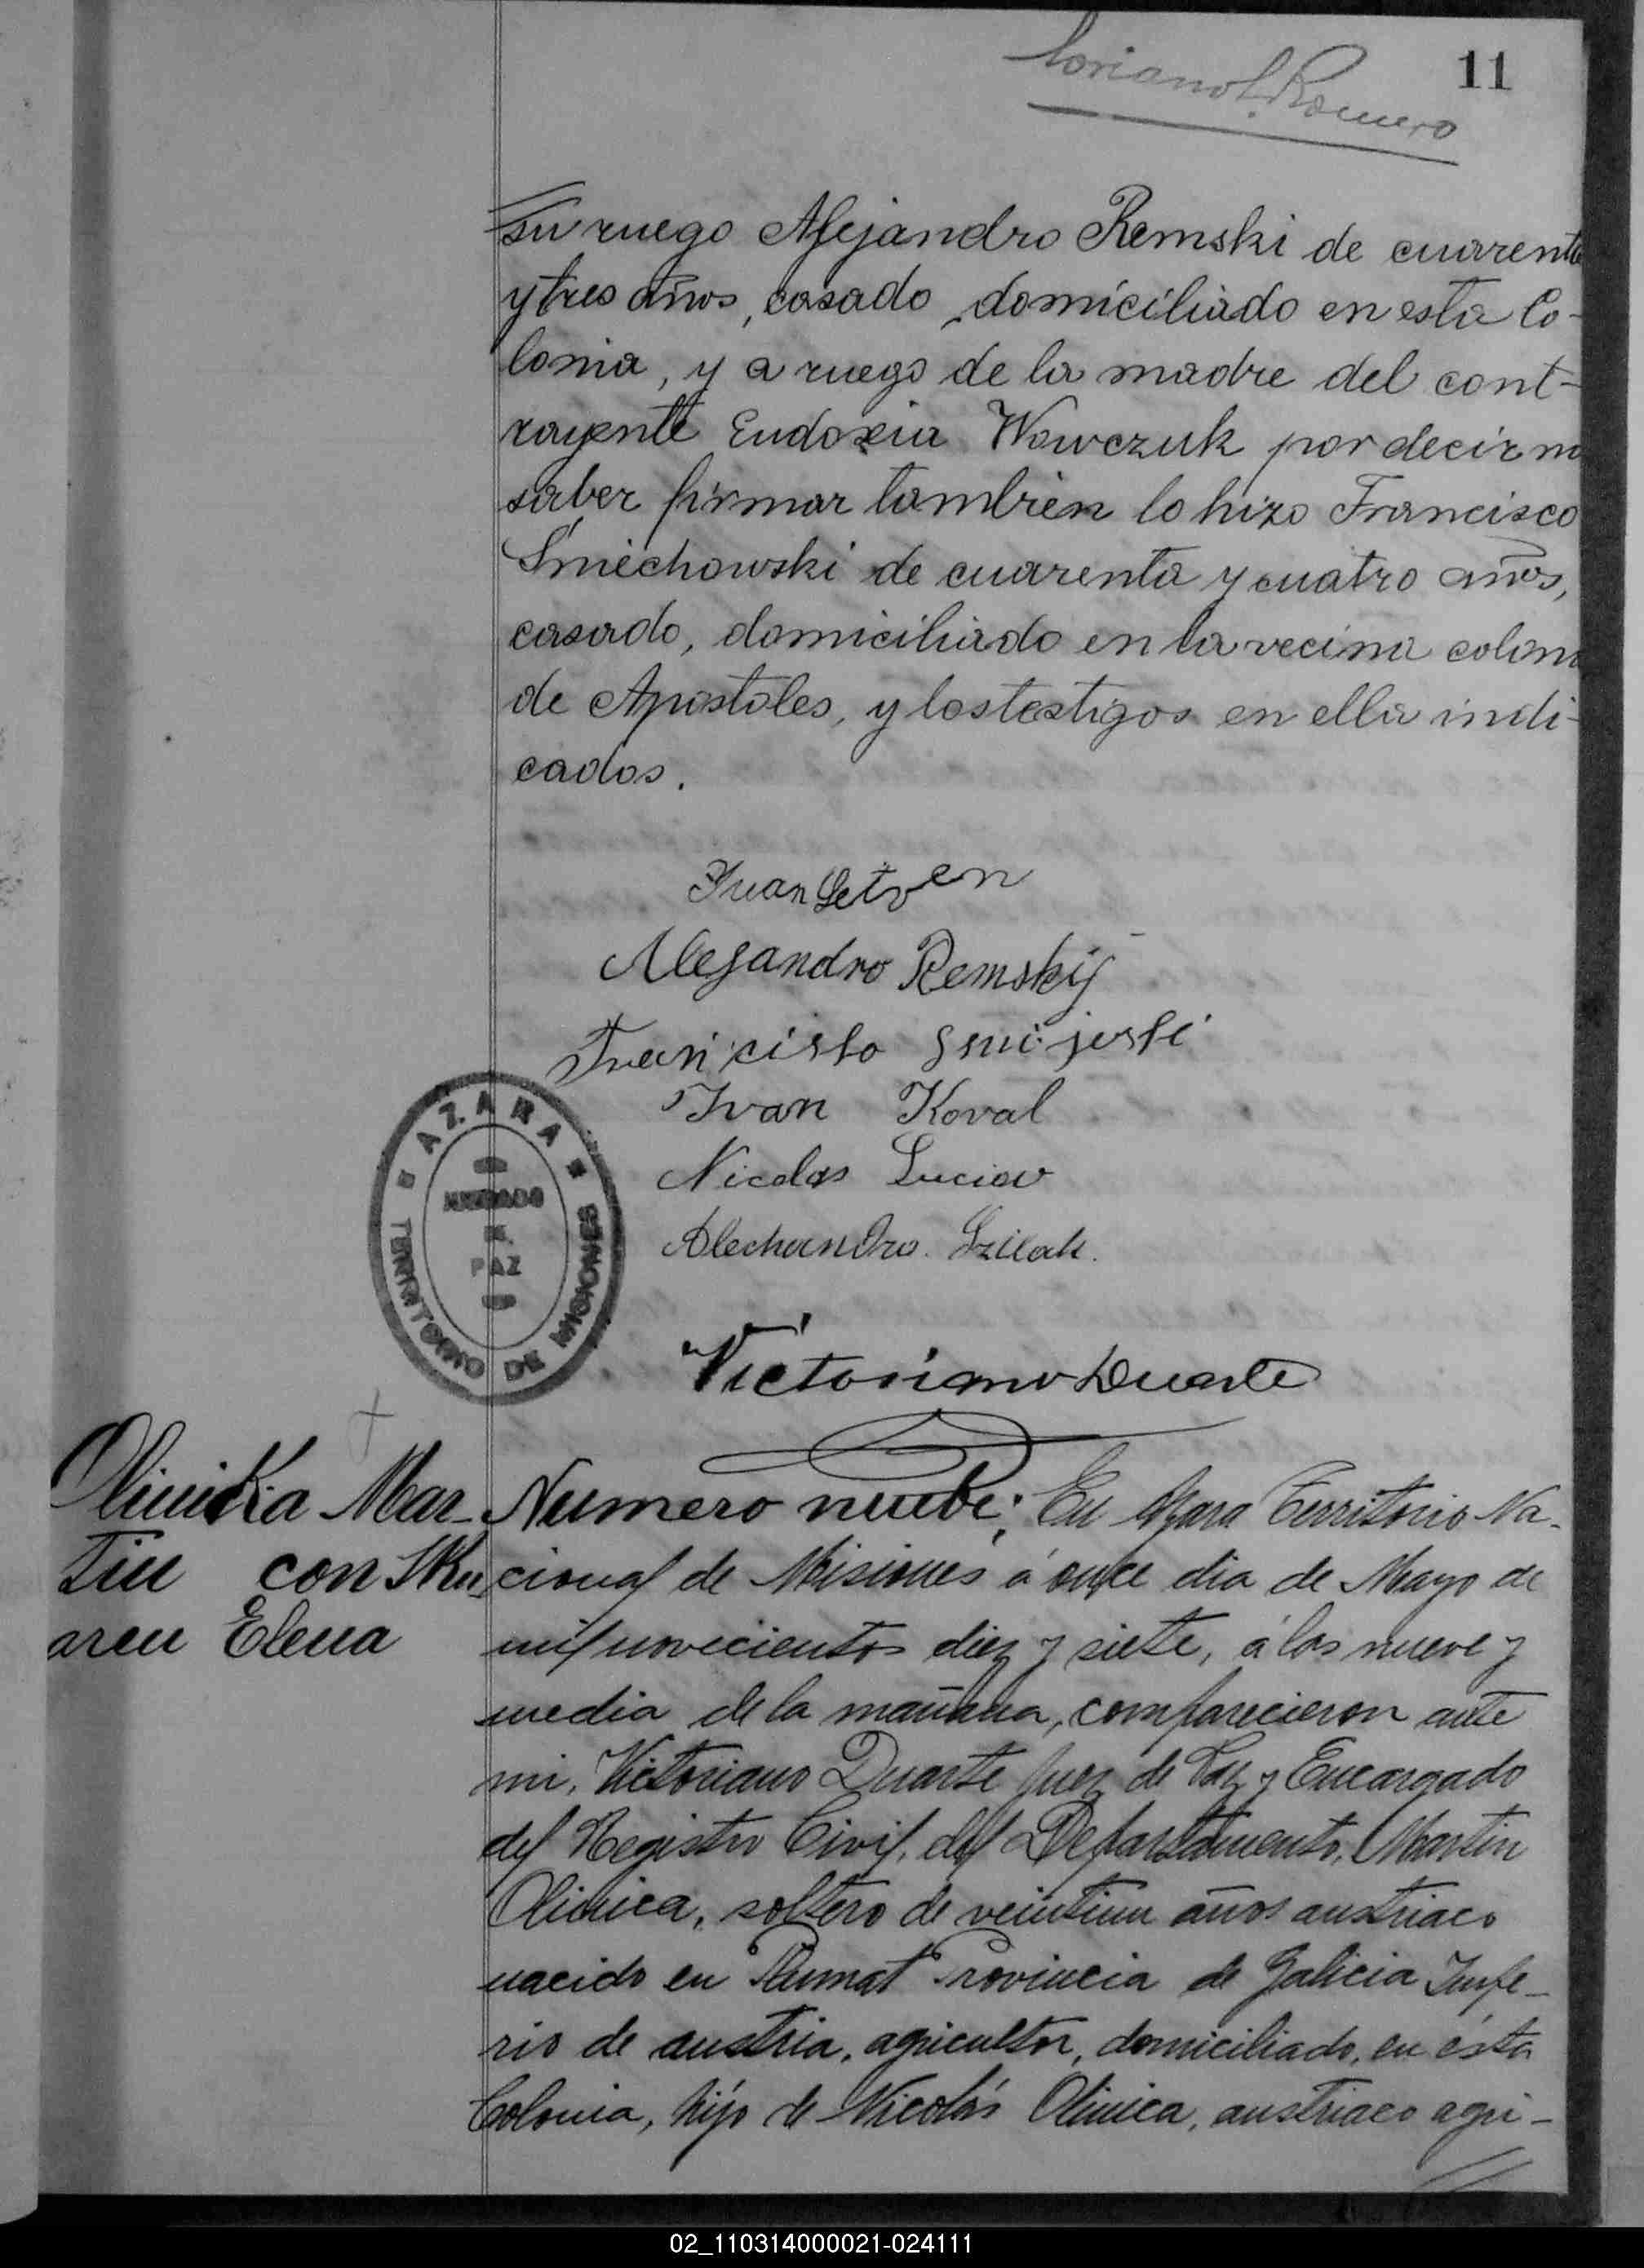 11
Loriano L. Romero
su ruego Alejandro Remski de cuarenta
y tres años, casado, domiciliado en esta Co-
lonia, y a ruego de la madre del cont-
rayente Eudoxia Wowczuk por decir no
saber firmar tambien lo hizo Francisco
Smiechowski de cuarenta y cuatro años,
casado, domiciliado en la vecina colon
de Apostoles, y los testigos en ella indi-
cados.
Juan
Alejandro Remskij
Ivan Koval
Nicolas Luciow
Alechandro
AZARA
JUZGADO
DE
PAZ
TERRITORIO DE MISIONES
Victoriano Duarte
Olinika Mar-
tin con Sku
aren Elena
Numero nueve: En Azara Territorio Na-
cional de Misiones á once dia de Mayo de
mil novecientos diez y siete, á las nueve y
media de la mañana, comparecieron ante
mi, Victoriano Duarte Juez de Paz y Encargado
del Registro Civil, del Departamento, Martin
Olinica, soltero de veintiun años austriaco
nacido en Provincia de Galicia Impe-
rio de austria, agricultor, domiciliado, en ésta
Colonia, hijo de Nicolás Olinica, austriaco agri-
02_110314000021-024111